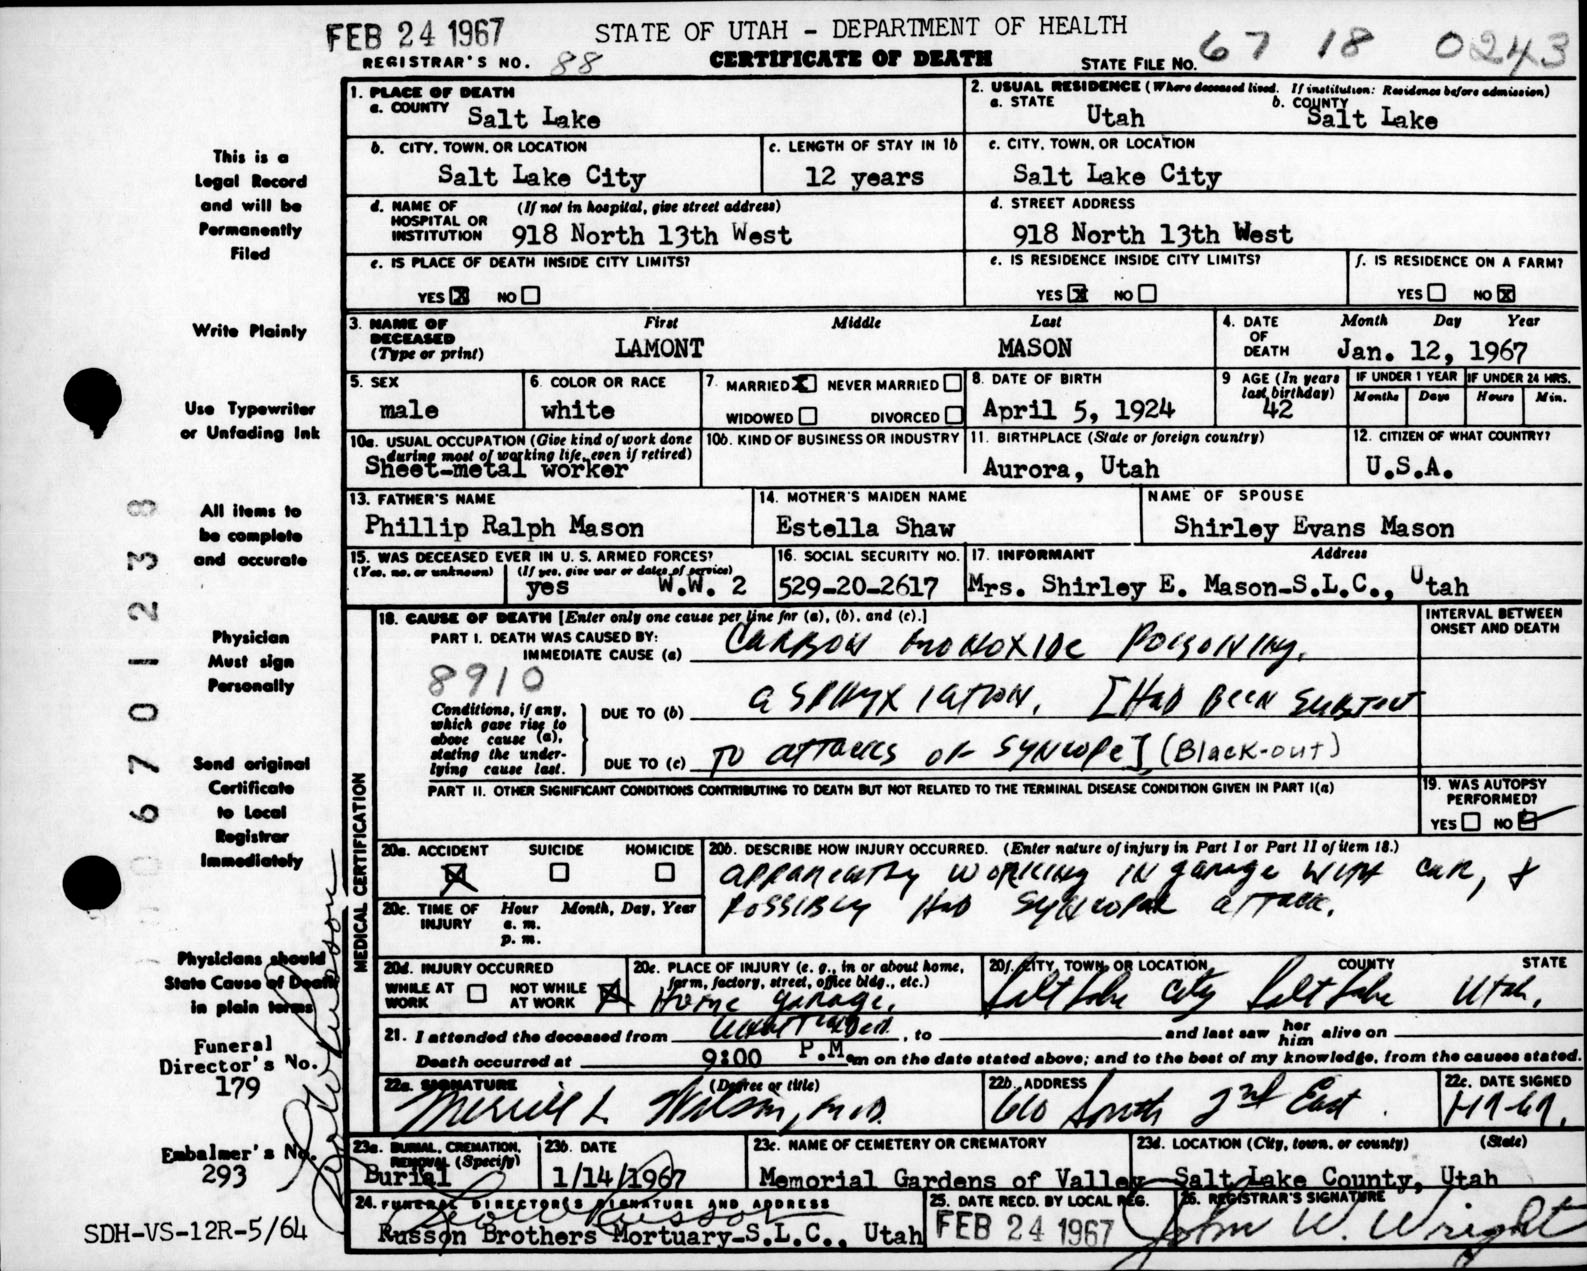 FEB 24 1967
STATE OF UTAH - DEPARTMENT OF HEALTH
CERTIFICATE OF DEATH
REGISTRAR'S NO. 88
STATE FILE NO. 67 18 0243
1. PLACE OF DEATH
a. COUNTY Salt Lake
2. USUAL RESIDENCE (Where deceased lived. If institution: Residence before admission)
a. STATE Utah b. COUNTY Salt Lake
b. CITY, TOWN, OR LOCATION Salt Lake City
c. LENGTH OF STAY IN 1b 12 years
c. CITY, TOWN, OR LOCATION Salt Lake City
d. NAME OF HOSPITAL OR INSTITUTION (If not in hospital, give street address) 918 North 13th West
d. STREET ADDRESS 918 North 13th West
e. IS PLACE OF DEATH INSIDE CITY LIMITS?
YES X NO
e. IS RESIDENCE INSIDE CITY LIMITS?
YES X NO
f. IS RESIDENCE ON A FARM?
YES NO X
3. NAME OF DECEASED (Type or print) First Middle Last
LAMONT MASON
4. DATE OF DEATH Month Day Year
Jan. 12, 1967
5. SEX male
6. COLOR OR RACE white
7. MARRIED X NEVER MARRIED
WIDOWED DIVORCED
8. DATE OF BIRTH April 5, 1924
9 AGE (In years last birthday) 42
IF UNDER 1 YEAR Months Days
IF UNDER 24 HRS. Hours Min.
10a. USUAL OCCUPATION (Give kind of work done during most of working life, even if retired)
Sheet-metal worker
10b. KIND OF BUSINESS OR INDUSTRY
11. BIRTHPLACE (State or foreign country) Aurora, Utah
12. CITIZEN OF WHAT COUNTRY? U.S.A.
13. FATHER'S NAME Phillip Ralph Mason
14. MOTHER'S MAIDEN NAME Estella Shaw
NAME OF SPOUSE Shirley Evans Mason
15. WAS DECEASED EVER IN U. S. ARMED FORCES?
(Yes, no, or unknown) (If yes, give war or dates of service)
yes W.W. 2
16. SOCIAL SECURITY NO. 529-20-2617
17. INFORMANT Address
Mrs. Shirley E. Mason-S.L.C., Utah
18. CAUSE OF DEATH [Enter only one cause per line for (a), (b), and (c).]
INTERVAL BETWEEN ONSET AND DEATH
PART I. DEATH WAS CAUSED BY:
IMMEDIATE CAUSE (a) Carbon monoxide poisoning,
8910
Conditions, if any, which gave rise to above cause (a), stating the underlying cause last.
DUE TO (b) asphyxiation. [Had been subject
DUE TO (c) to attacks of syncope] (Black-out)
PART II. OTHER SIGNIFICANT CONDITIONS CONTRIBUTING TO DEATH BUT NOT RELATED TO THE TERMINAL DISEASE CONDITION GIVEN IN PART I(a)
19. WAS AUTOPSY PERFORMED?
YES NO
20a. ACCIDENT SUICIDE HOMICIDE
X
20b. DESCRIBE HOW INJURY OCCURRED. (Enter nature of injury in Part I or Part II of item 18.)
apparently working in garage with car, &
possibly had syncopal attack.
20c. TIME OF INJURY Hour Month, Day, Year
a. m.
p. m.
20d. INJURY OCCURRED
WHILE AT WORK NOT WHILE AT WORK X
20e. PLACE OF INJURY (e. g., in or about home, farm, factory, street, office bldg., etc.)
Home garage.
20f. CITY, TOWN, OR LOCATION COUNTY STATE
Salt Lake City Salt Lake Utah.
21. I attended the deceased from unattended. , to and last saw her him alive on
Death occurred at 9:00 P.M. m on the date stated above; and to the best of my knowledge, from the causes stated.
22a. SIGNATURE (Degree or title)
Merrill L. Wilson, M.D.
22b. ADDRESS 610 South 2nd East.
22c. DATE SIGNED
23a. BURIAL, CREMATION, REMOVAL (Specify) Burial
23b. DATE 1/14/1967
23c. NAME OF CEMETERY OR CREMATORY Memorial Gardens of Valley
23d. LOCATION (City, town, or county) (State)
Salt Lake County, Utah
24. FUNERAL DIRECTOR'S SIGNATURE AND ADDRESS
Russon Brothers Mortuary-S.L.C., Utah
25. DATE RECD. BY LOCAL REG. FEB 24 1967
26. REGISTRAR'S SIGNATURE
John W. Wright
MEDICAL CERTIFICATION
This is a
Legal Record
and will be
Permanently
Filed
Write Plainly
Use Typewriter
or Unfading Ink
All items to
be complete
and accurate
Physician
Must sign
Personally
Send original
Certificate
to Local
Registrar
Immediately
Physicians should
State Cause of Death
in plain terms
Funeral
Director's No.
179
Embalmer's No.
293
SDH-VS-12R-5/64
0 6 7 0 1 2 3 8